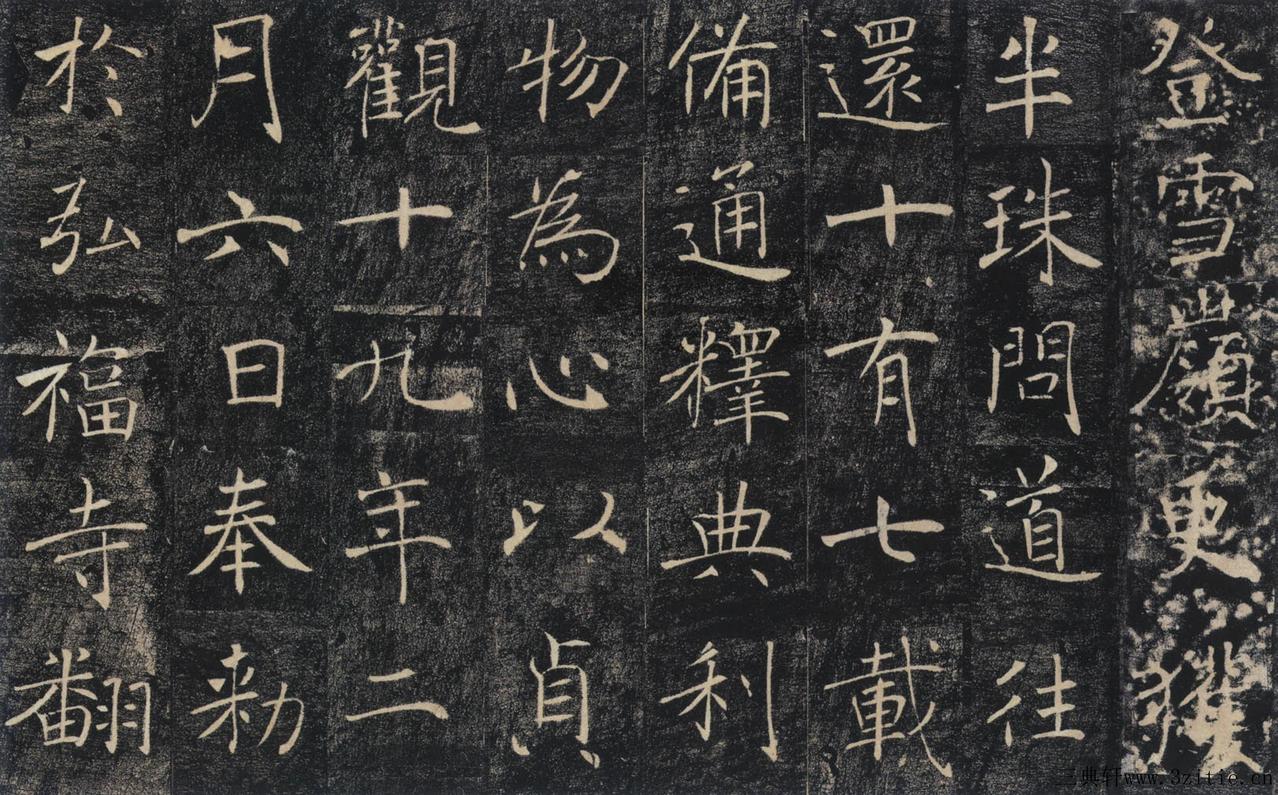 登雪嶺更獲
半珠問道往
還十有七載
備通釋典利
物為心以貞
觀十九年二
月六日奉勑
於弘福寺翻
三典轩www.3zitie.cn